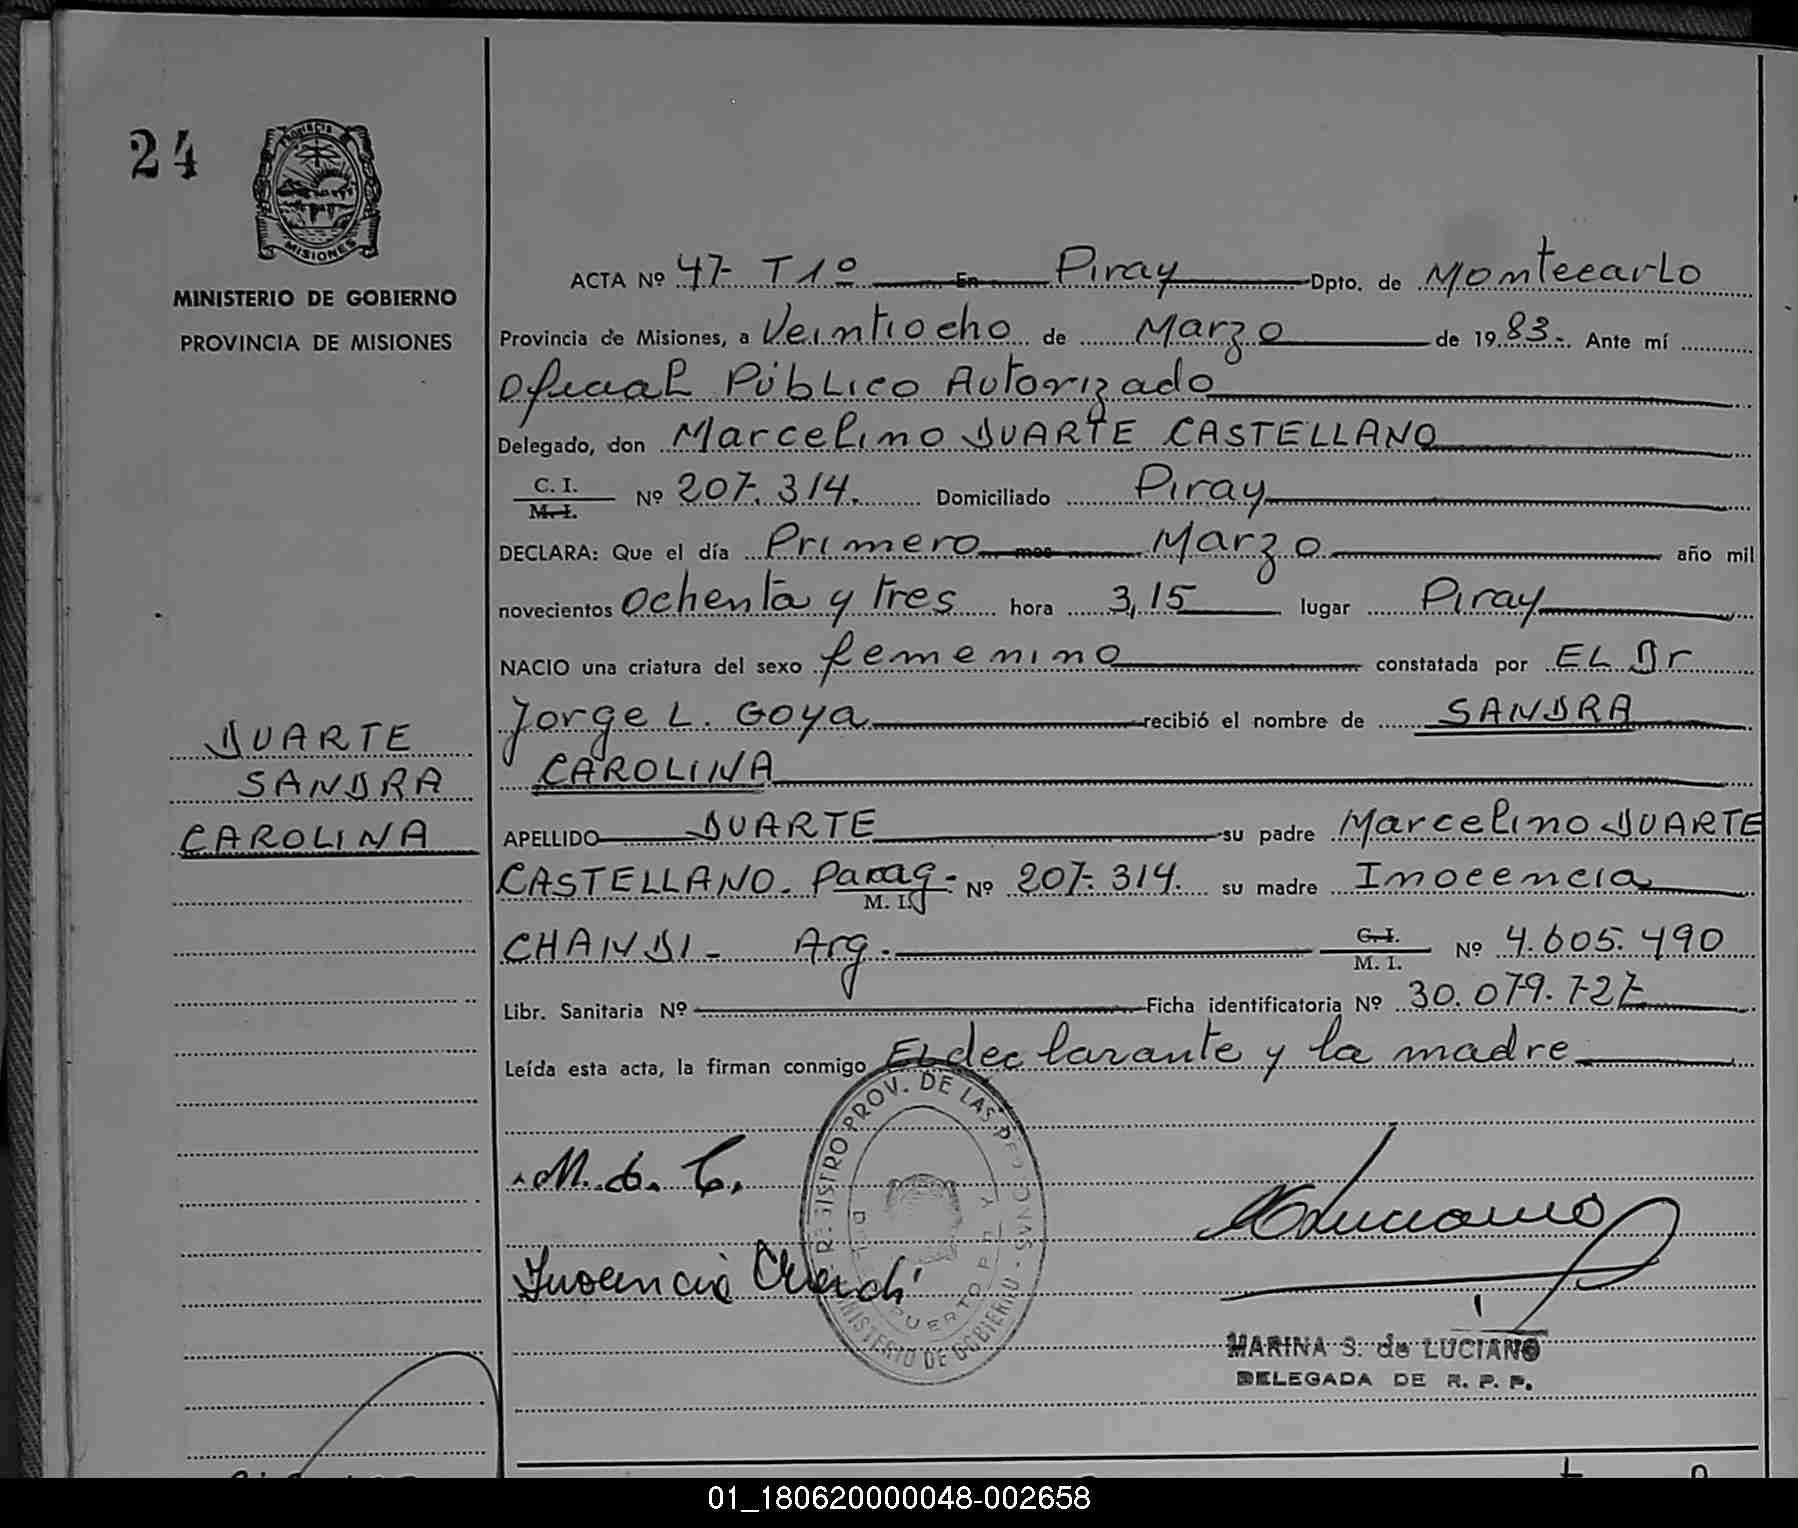 24
PROVINCIA
MISIONES
MINISTERIO DE GOBIERNO
PROVINCIA DE MISIONES
ACTA Nº 47- T 1º En Piray Dpto. de Montecarlo
Provincia de Misiones, a Veintiocho de Marzo de 19 83.- Ante mí
Oficial Público Autorizado
Delegado, don Marcelino DUARTE CASTELLANO
C. I.
M. I. Nº 207.314. Domiciliado Piray
DECLARA: Que el día Primero mes Marzo año mil
novecientos Ochenta y tres hora 3,15 lugar Piray
NACIO una criatura del sexo femenino constatada por EL Dr
Jorge L. Goya recibió el nombre de SANDRA
CAROLINA
DUARTE
SANDRA
CAROLINA
APELLIDO DUARTE su padre Marcelino DUARTE
CASTELLANO. Parag- Nº 207.314. su madre Inocencia
M. I.
CHANDI- Arg. C. I. Nº 4.605.490
M. I.
Libr. Sanitaria Nº Ficha identificatoria Nº 30.079.727
Leída esta acta, la firman conmigo El declarante y la madre
REGISTRO PROV. DE LAS PERSONAS - MINISTERIO DE GOBIERNO
PUERTO PIRAY
M. D. C.
Inocencia Chandi
MARINA S. de LUCIANO
DELEGADA DE R. P. P.
01_180620000048-002658